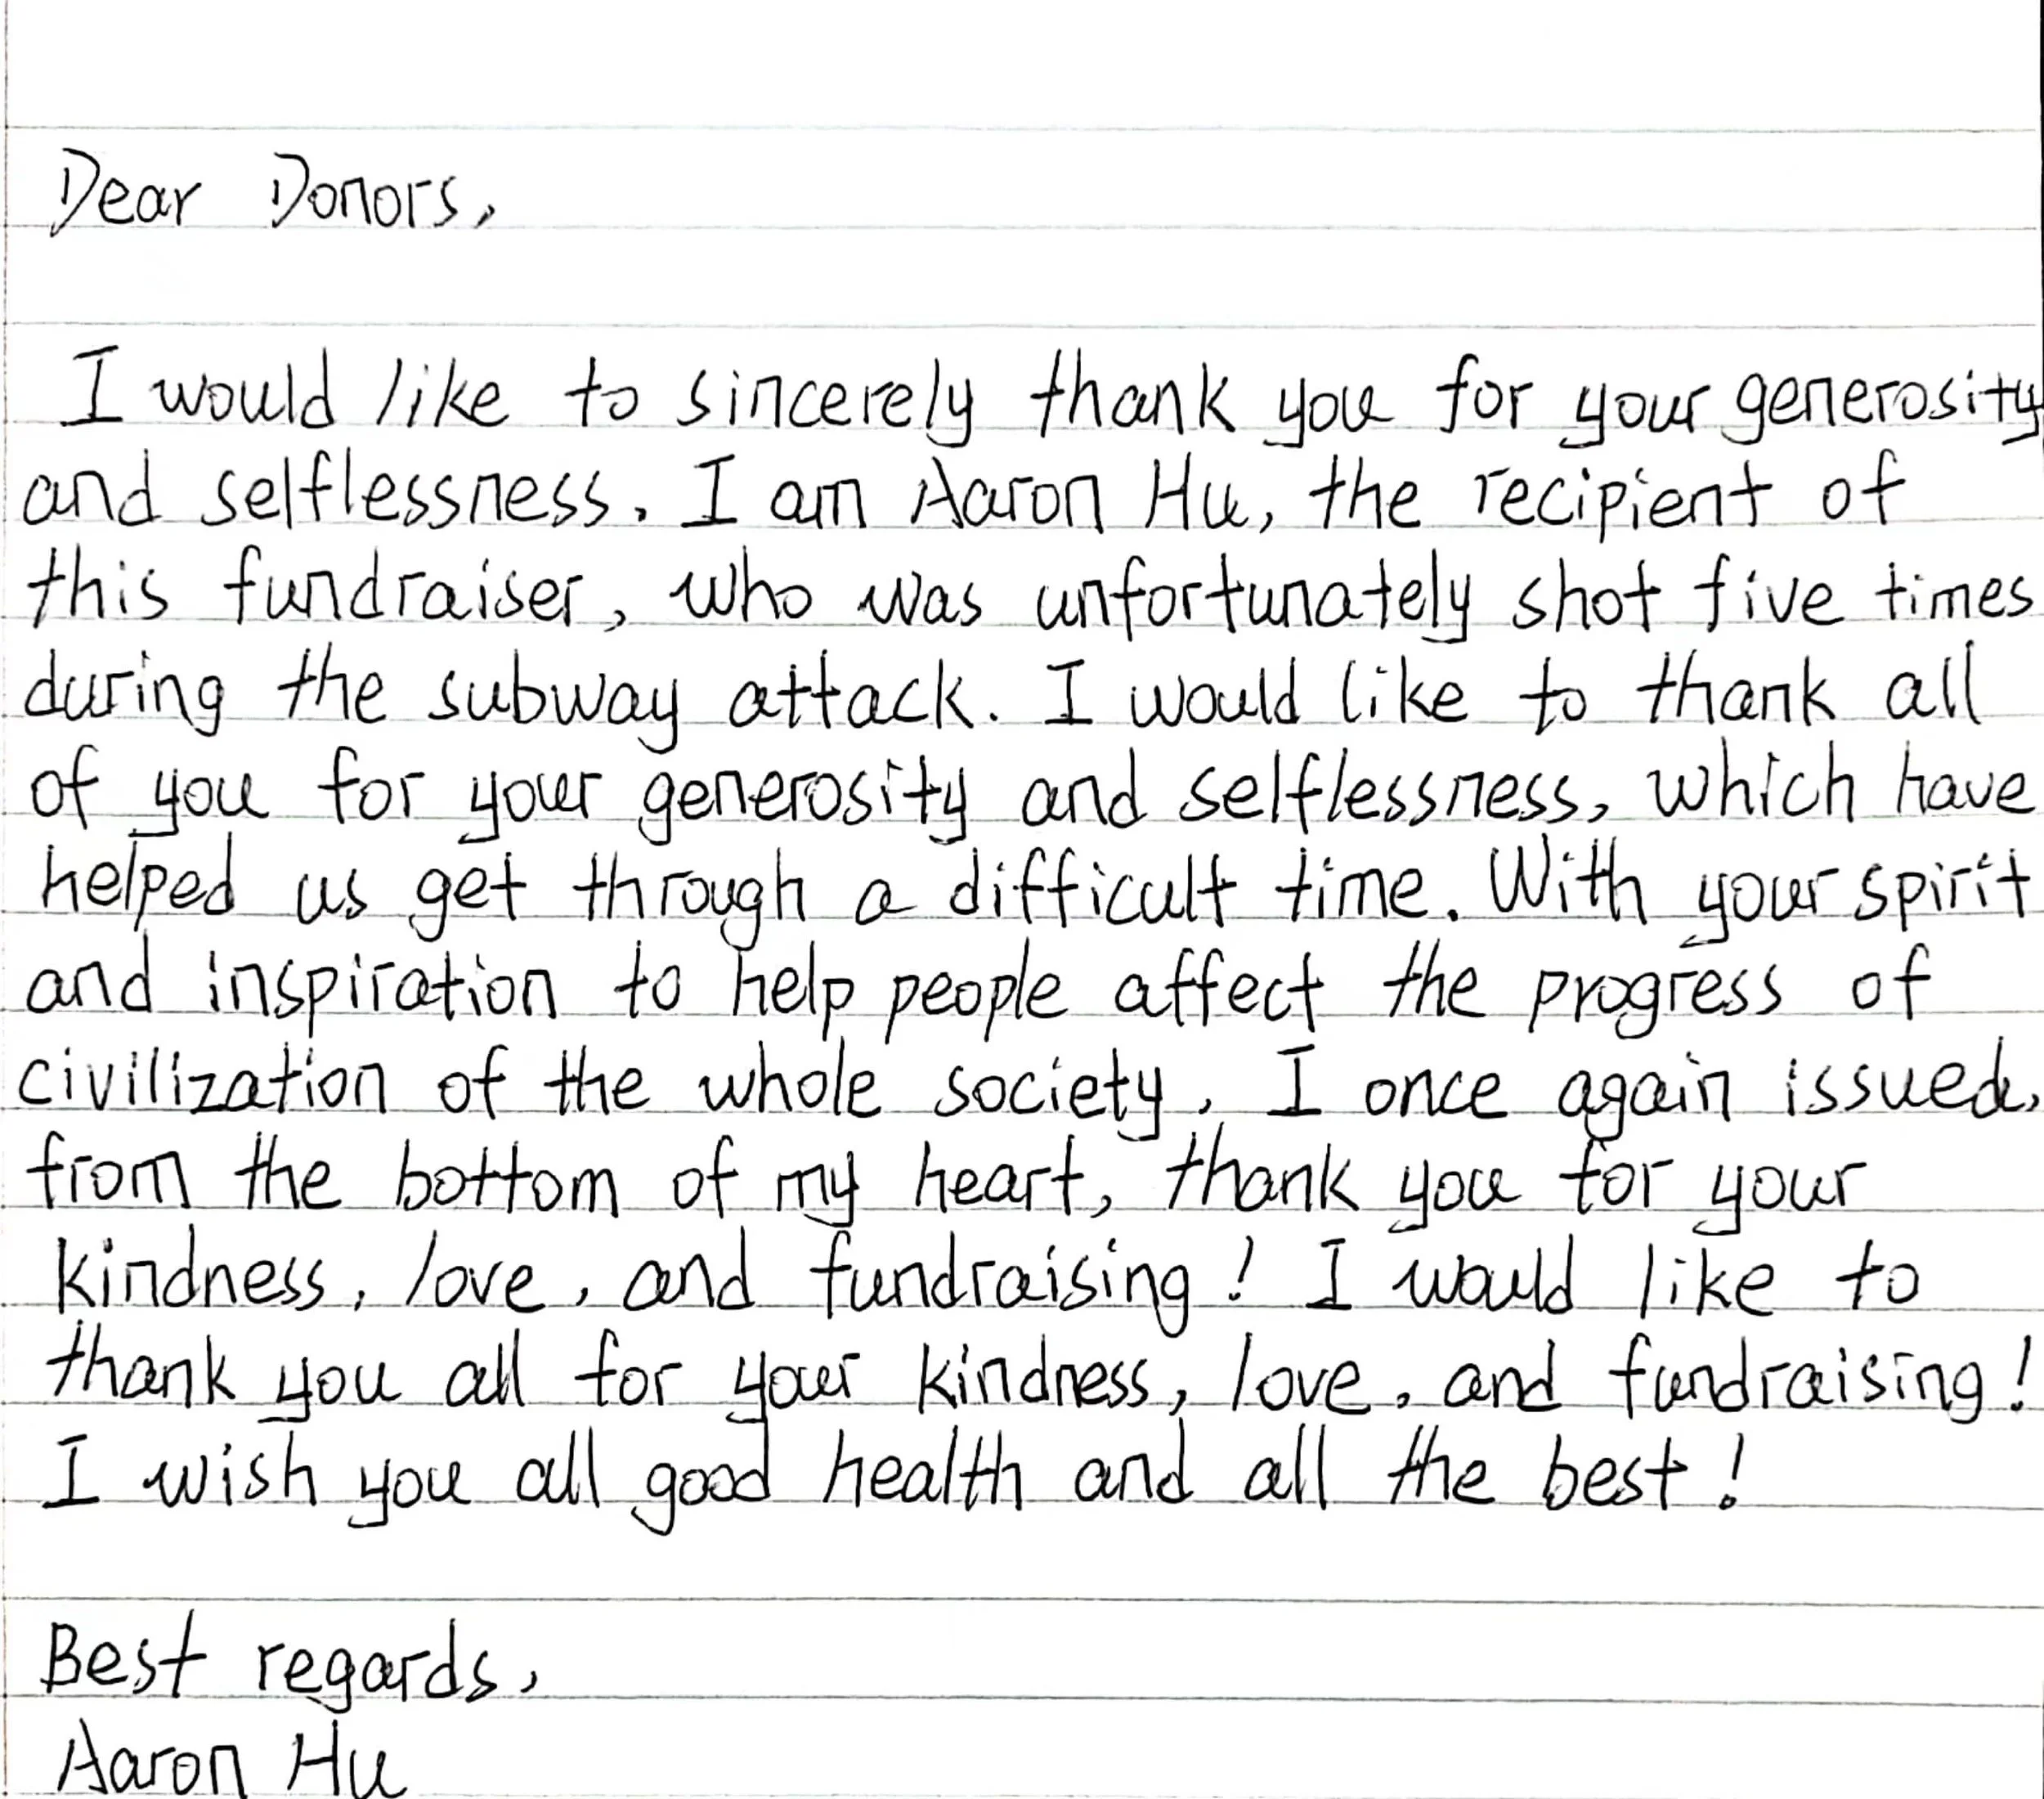 Dear Donors,
I would like to sincerely thank you for your generosity
and selflessness. I am Aaron Hu, the recipient of
this fundraiser, who was unfortunately shot five times
during the subway attack. I would like to thank all
of you for your generosity and selflessness, which have
helped us get through a difficult time. With your spirit
and inspiration to help people affect the progress of
civilization of the whole society, I once again issued,
from the bottom of my heart, thank you for your
kindness, love, and fundraising! I would like to
thank you all for your kindness, love, and fundraising!
I wish you all good health and all the best!
Best regards,
Aaron Hu